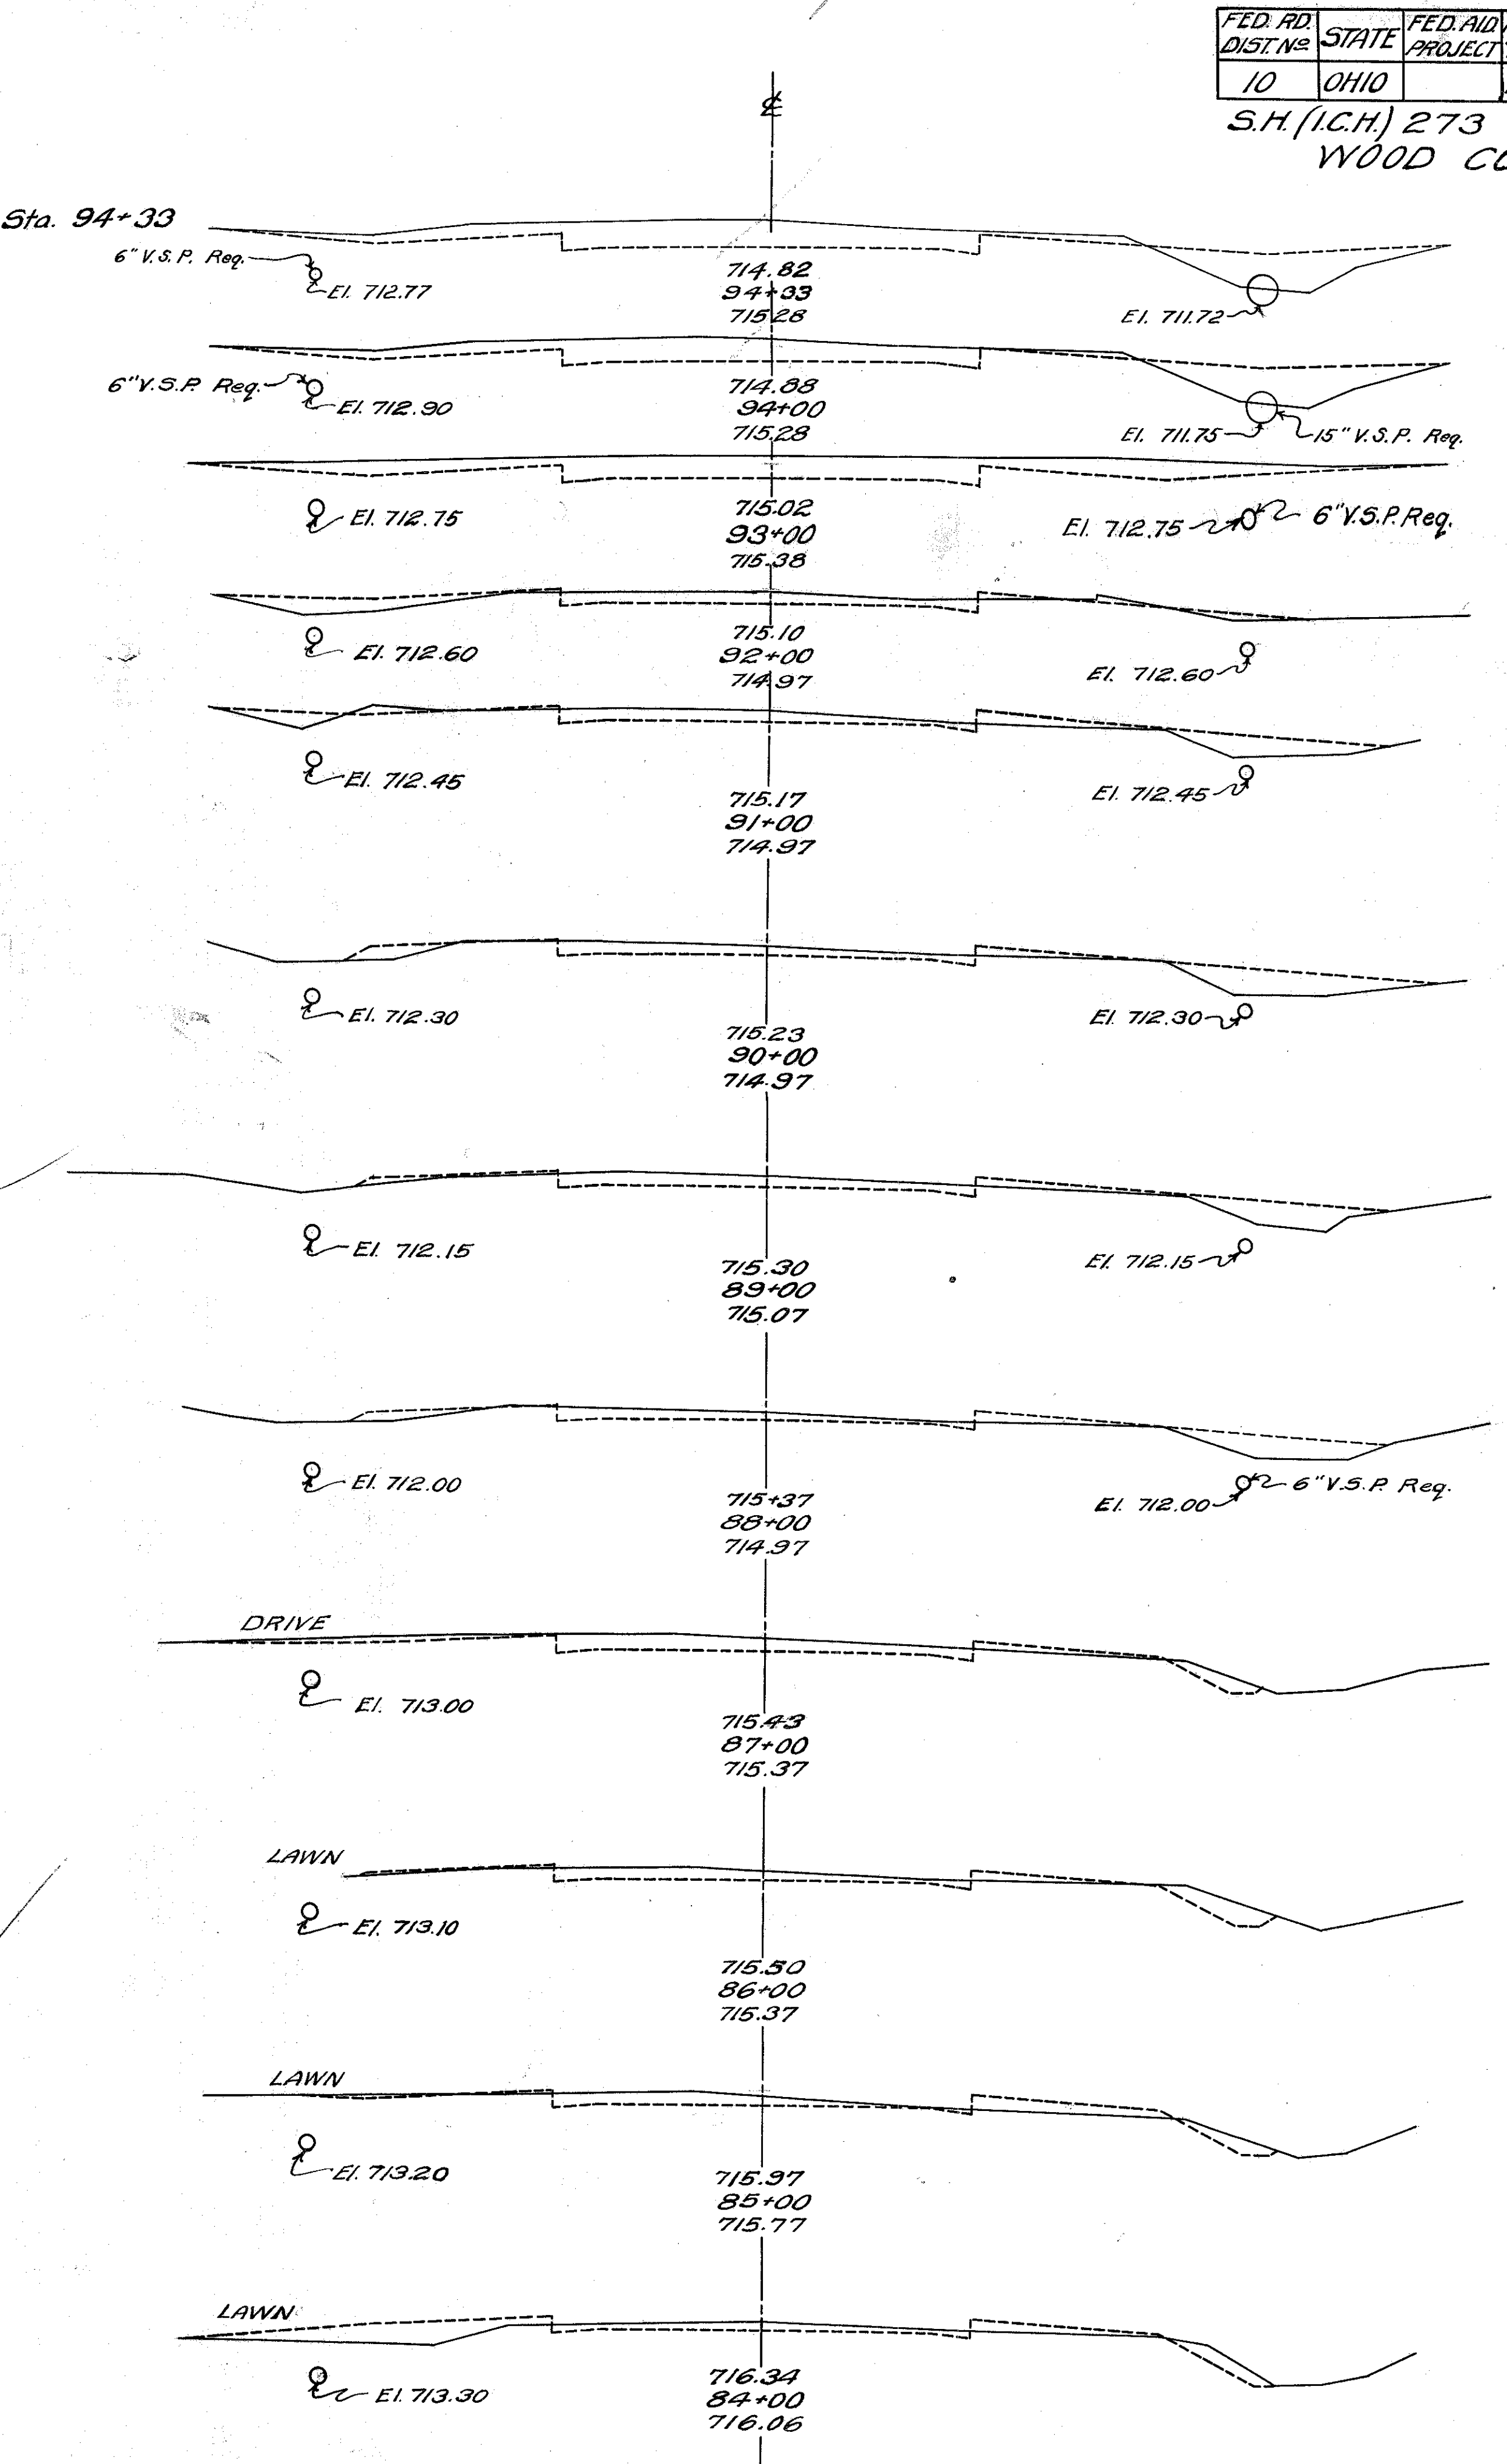 FED. RD. DIST. Nº STATE FED. AID PROJECT
10 OHIO
S.H. (I.C.H.) 273
WOOD
℄
Sta. 94+33
6" V.S.P. Req.
El. 712.77
714.82
94+33
715.28
El. 711.72
6" V.S.P. Req.
El. 712.90
714.88
94+00
715.28
El. 711.75
15" V.S.P. Req.
El. 712.75
715.02
93+00
715.38
El. 712.75
6" V.S.P. Req.
El. 712.60
715.10
92+00
714.97
El. 712.60
El. 712.45
715.17
91+00
714.97
El. 712.45
El. 712.30
715.23
90+00
714.97
El. 712.30
El. 712.15
715.30
89+00
715.07
El. 712.15
El. 712.00
715+37
88+00
714.97
El. 712.00
6" V.S.P. Req.
DRIVE
El. 713.00
715.43
87+00
715.37
LAWN
El. 713.10
715.50
86+00
715.37
LAWN
El. 713.20
715.97
85+00
715.77
LAWN
El. 713.30
716.34
84+00
716.06